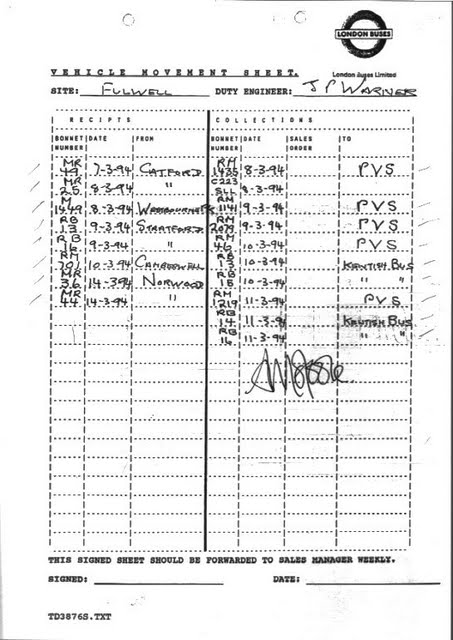 LONDON BUSES
VEHICLE MOVEMENT SHEET.
London Buses Limited
SITE: FULWELL DUTY ENGINEER: J P WARINER
RECEIPTS COLLECTIONS
BONNET NUMBER DATE FROM BONNET NUMBER DATE SALES ORDER TO
MR 49 7-3-94 CATFORD RM 1435 8-3-94 PVS
MR 25 8-3-94 " C223 SLL 8-3-94
M 1449 8-3-94 RM 1141 9-3-94 PVS
RB 13 9-3-94 STRATFORD RM 2079 9-3-94 PVS
RB 16 9-3-94 " RM 46 10-3-94 PVS
RM 701 10-3-94 CAMBERWELL RB 13 10-3-94 KENTISH BUS
MR 36 14-3-94 NORWOOD RB 15 10-3-94 " "
MR 44 14-3-94 " RM 1219 11-3-94 PVS
RB 14 11-3-94 KENTISH BUS
RB 16 11-3-94 " "
THIS SIGNED SHEET SHOULD BE FORWARDED TO SALES MANAGER WEEKLY.
SIGNED: DATE:
TD3876S.TXT